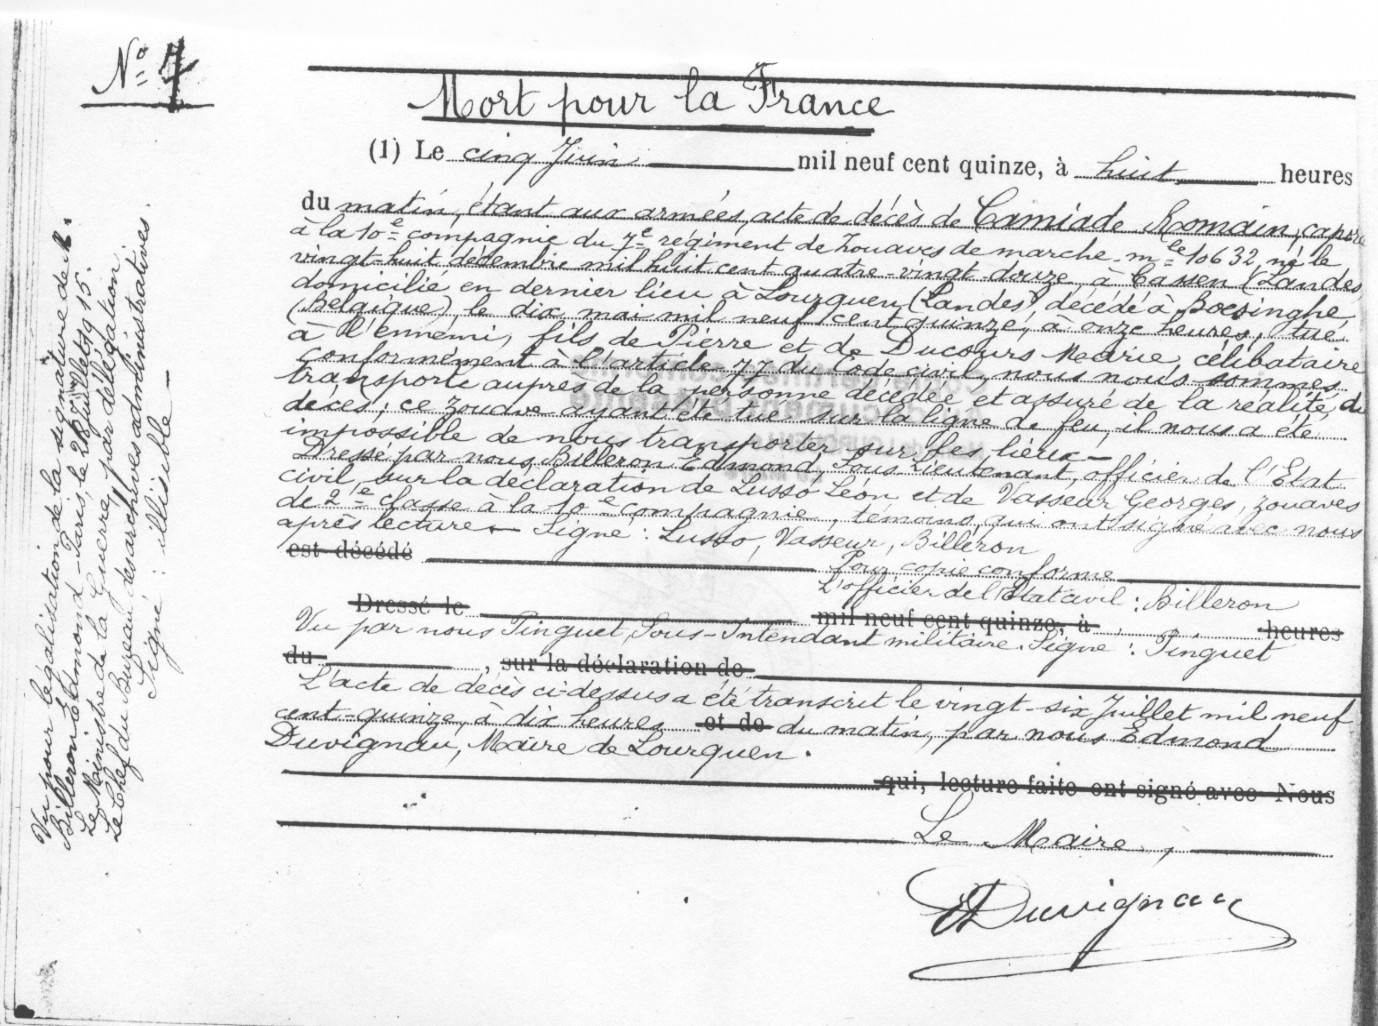 N° 7
Mort pour la France
(1) Le cinq Juin mil neuf cent quinze, à huit heures
du matin, étant aux armées, acte de décès de Camiade Romain, capora
à la 10e compagnie du 7e régiment de Zouaves de marche - mle 10632, né le
vingt-huit décembre mil huit cent quatre-vingt douze, à Cassen (Landes
domicilié en dernier lieu à Lourquen (Landes) décédé à Boesinghe
(Belgique), le dix mai mil neuf cent quinze, à onze heures, tué
à l'ennemi, fils de Pierre et de Ducours Marie, célibataire
Conformément à l'article 77 du Code civil, nous nous sommes
transporté auprès de la personne décédée et assuré de la réalité du
décès; ce zouave ayant été tué sur la ligne de feu, il nous a été
impossible de nous transporter sur les lieux -
Dressé par nous, Billeron Edmond, Sous Lieutenant, officier de l'Etat
civil, sur la déclaration de Lusso Léon et de Vasseur Georges, zouaves
de 2e classe à la 10e compagnie, témoins, qui ont signé avec nous
après lecture - Signé : Lusso, Vasseur, Billeron
est décédé Pour copie conforme
L'officier de l'Etat civil : Billeron
Dressé le mil neuf cent quinze, à heures
Vu par nous Pinguet, Sous-Intendant militaire. Signé : Pinguet
du , sur la déclaration de
L'acte de décès ci-dessus a été transcrit le vingt-six Juillet mil neuf
cent-quinze, à dix heures et de du matin, par nous Edmond
Duvignau, Maire de Lourquen.
qui, lecture faite ont signé avec Nous
Le Maire,
EDuvignau
Vu pour légalisation de la signature de M.
Billeron Edmond - Paris, le 28 Juillet 1915.
Le Ministre de la Guerre, par délégation
Le Chef du Bureau des archives administratives.
Signé : illisible -